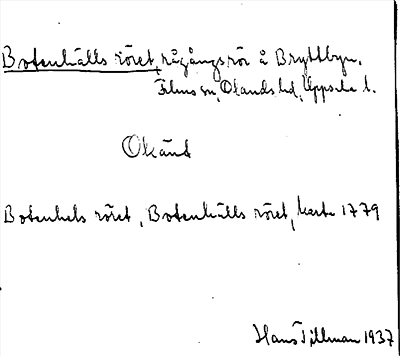 Botenhälls röret, rågångsrör å Bryttbyn,
Films sn, Olands hd, Uppsala l.
Okänd
Botenhels röret, Botenhälls röret, karta 1779
Hans Tillman 1937